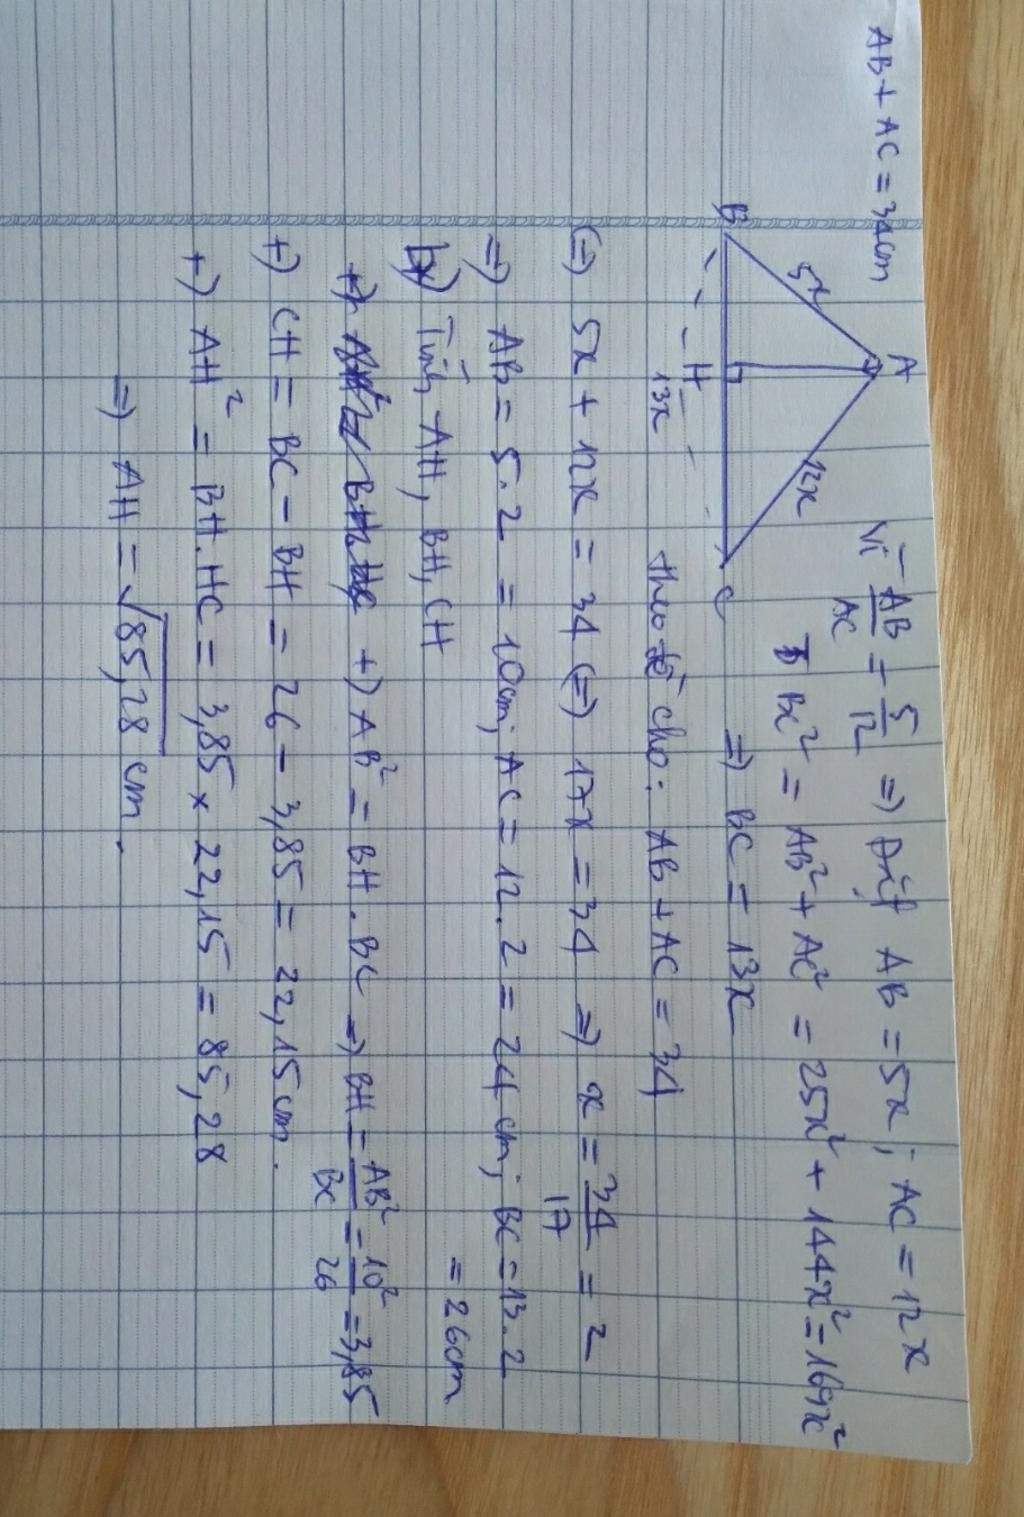 AB + AC = 34cm
A
5x
12x
B
H
C
13x
Vì AB/AC = 5/12 => Đặt AB = 5x; AC = 12x
BC² = AB² + AC² = 25x² + 144x² = 169x²
=> BC = 13x
theo đề cho: AB + AC = 34
(=) 5x + 12x = 34 (=) 17x = 34 => x = 34/17 = 2
=> AB = 5.2 = 10cm; AC = 12.2 = 24cm; BC = 13.2
= 26cm
b) Tính AH, BH, CH
+) AB² = BH.BC => BH = AB²/BC = 10²/26 = 3,85
+) CH = BC - BH = 26 - 3,85 = 22,15cm.
+) AH² = BH.HC = 3,85 × 22,15 = 85,28
=> AH = √85,28 cm.